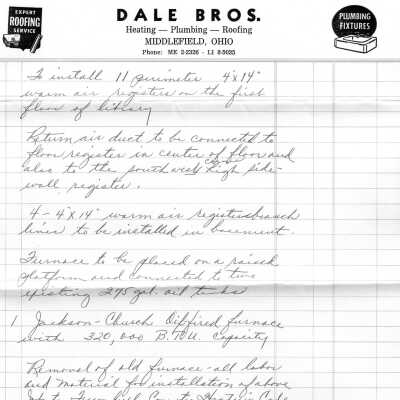 EXPERT
ROOFING
SERVICE
DALE BROS.
Heating — Plumbing — Roofing
MIDDLEFIELD, OHIO
Phone: ME 2-2326 - LI 8-5695
PLUMBING
FIXTURES
To install 11 perimeter 4"x14"
warm air registers on the first
floor of library
Return air duct to be connected to
floor register in center of floor and
also to the southwest high side-
wall register.
4 - 4"x14" warm air registers branch
lines to be installed in basement.
Furnace to be placed on a raised
platform and connected to two
existing 275 gal. oil tanks
1 Jackson-Church Oil fired furnace
with 320,000 B.T.U. Capacity
Removal of old furnace - all labor
and material for installation of above